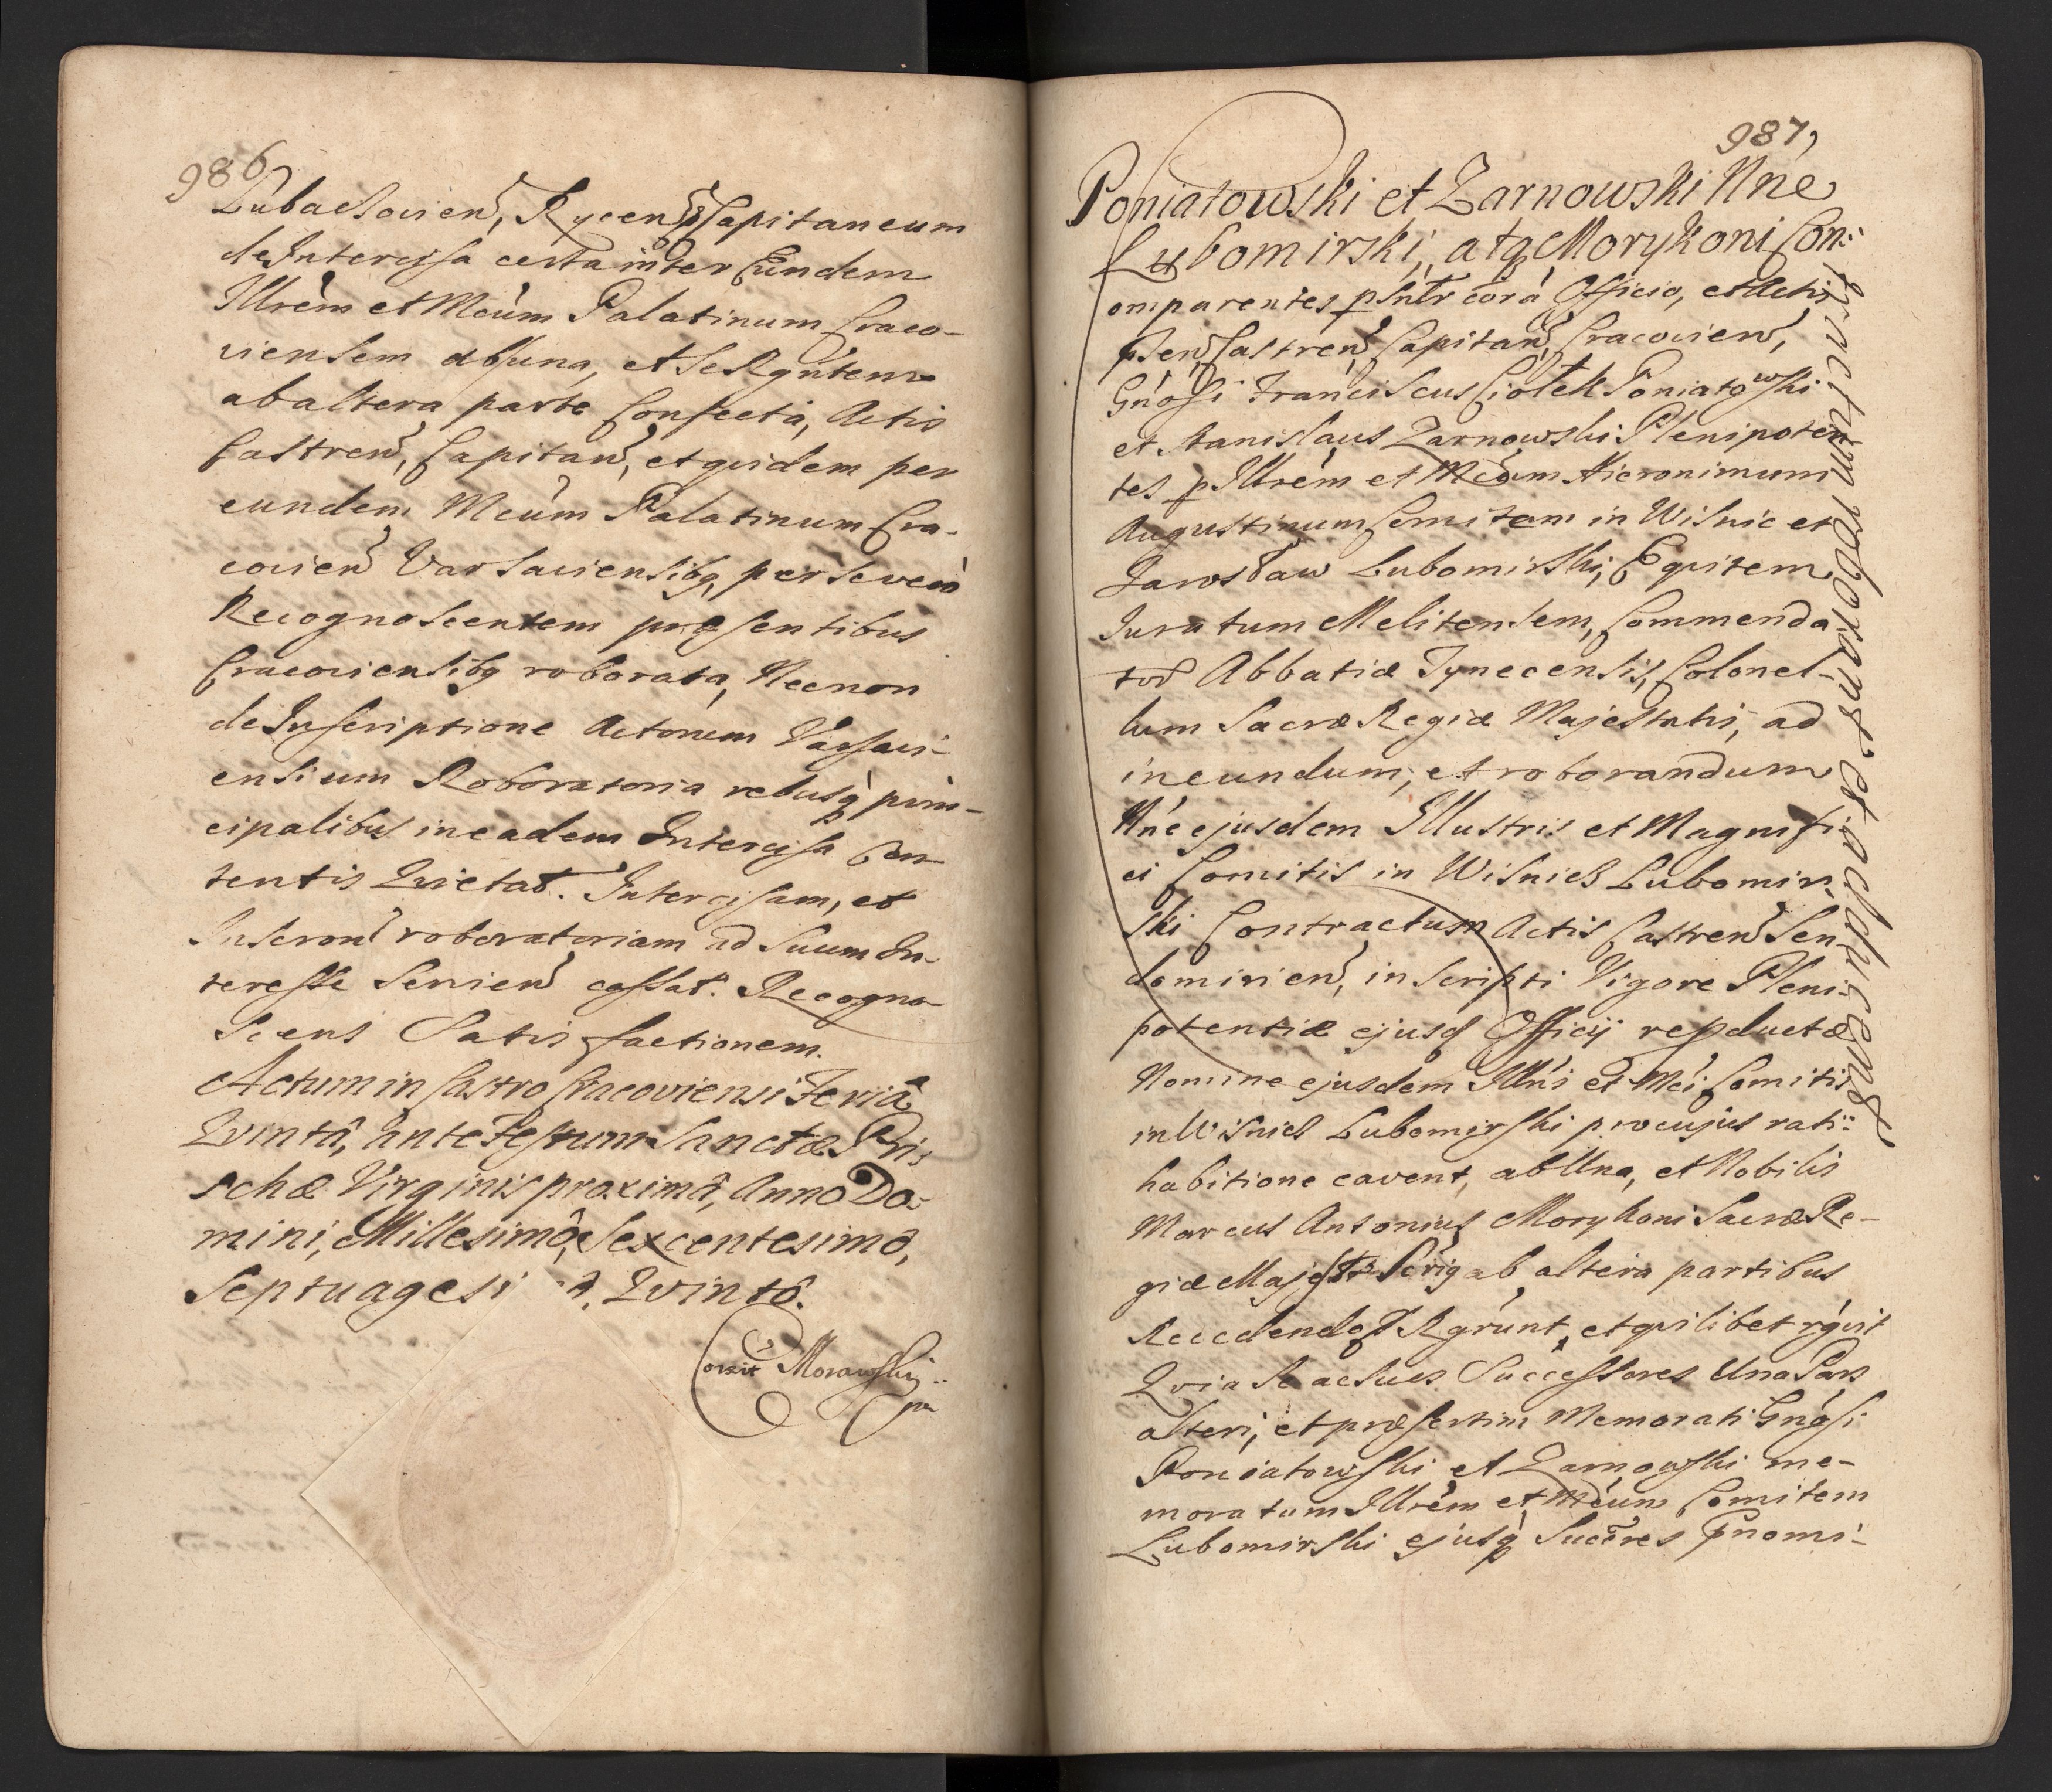 986
Lubaczovien, Rycen Capitaneum
de Intercisa certa inter Eundem
Illrem et Mcum Palatinum Craco-
viensem ab una, et se Rgntem
ab altera parte Confecta, Actis
Castren, Capitan, et quidem per
eundem Mcum Palatinum Cra-
covien Varsaviensibq, per se vero
Recognoscentem præsentibus
Cracoviensibq roborata, Necnon
de Inscriptione Actorum Varsavi-
ensium Roboratoria rebusq prin-
cipalibus in eadem Intercisa Con-
tentis Quietat. Intercisam, et
Inscron roboratoriam ad suum In-
teresse Servien cassat. Recogno-
scens Satisfactionem.
Actum in Castro Cracoviensi Feria
Quintâ, ante Festum Sanctæ Pris
schæ Virginis proximâ, Anno Do-
mini, Millesimô, Sexcentesimô,
Septuagesi Quintô.
Corrit Morawski
mp
987
Poniatowski et Zarnowski Nne
Lubomirski, atq Morykoni Con-
tractum roborant et adducent
omparentes psnltr corâ Officio, et Actis
psen, Castren, Capitan, Cracovien,
Gnosi Franciscus Ciołek Poniatowski
et Stanislaus Zarnowski Plenipoten
tes p Illrem et Mcum Hieronimum
Augustinum Comitem in Wisnic et
Jarosław Lubomirski, Equitem
Juratum Melitensem, Commenda
tor Abbatiæ Tynecensis, Colonel-
lum Sacræ Regiæ Majestatis, ad
ineundum, et roborandum
Nne ejusdem Illustris et Magnifi
ci Comitis in Wisnicz Lubomir
ski Contractum Actis Castren Sen
domirien, inscripti Vigore Pleni-
potentiæ ejusd Officij repductæ
Nomine ejusdem Illris et Mci Comitis
in Wisnicz Lubomirski pro cujus rati-
habitione cavent, ab Una, et Nobilis
Marcus Antonius Morykoni Sacræ Re-
giæ Majestis Serig ab altera partibus
Recedendo Rgrunt, et quilibet rgvit
Quia Se ac Suos Successores Una Pars
alteri, et præsertim Memorati Gnosi
Poniatowski et Zarnowski me-
moratum Illrem et Mcum Comitem
Lubomirski ejusq Succres pnomi-